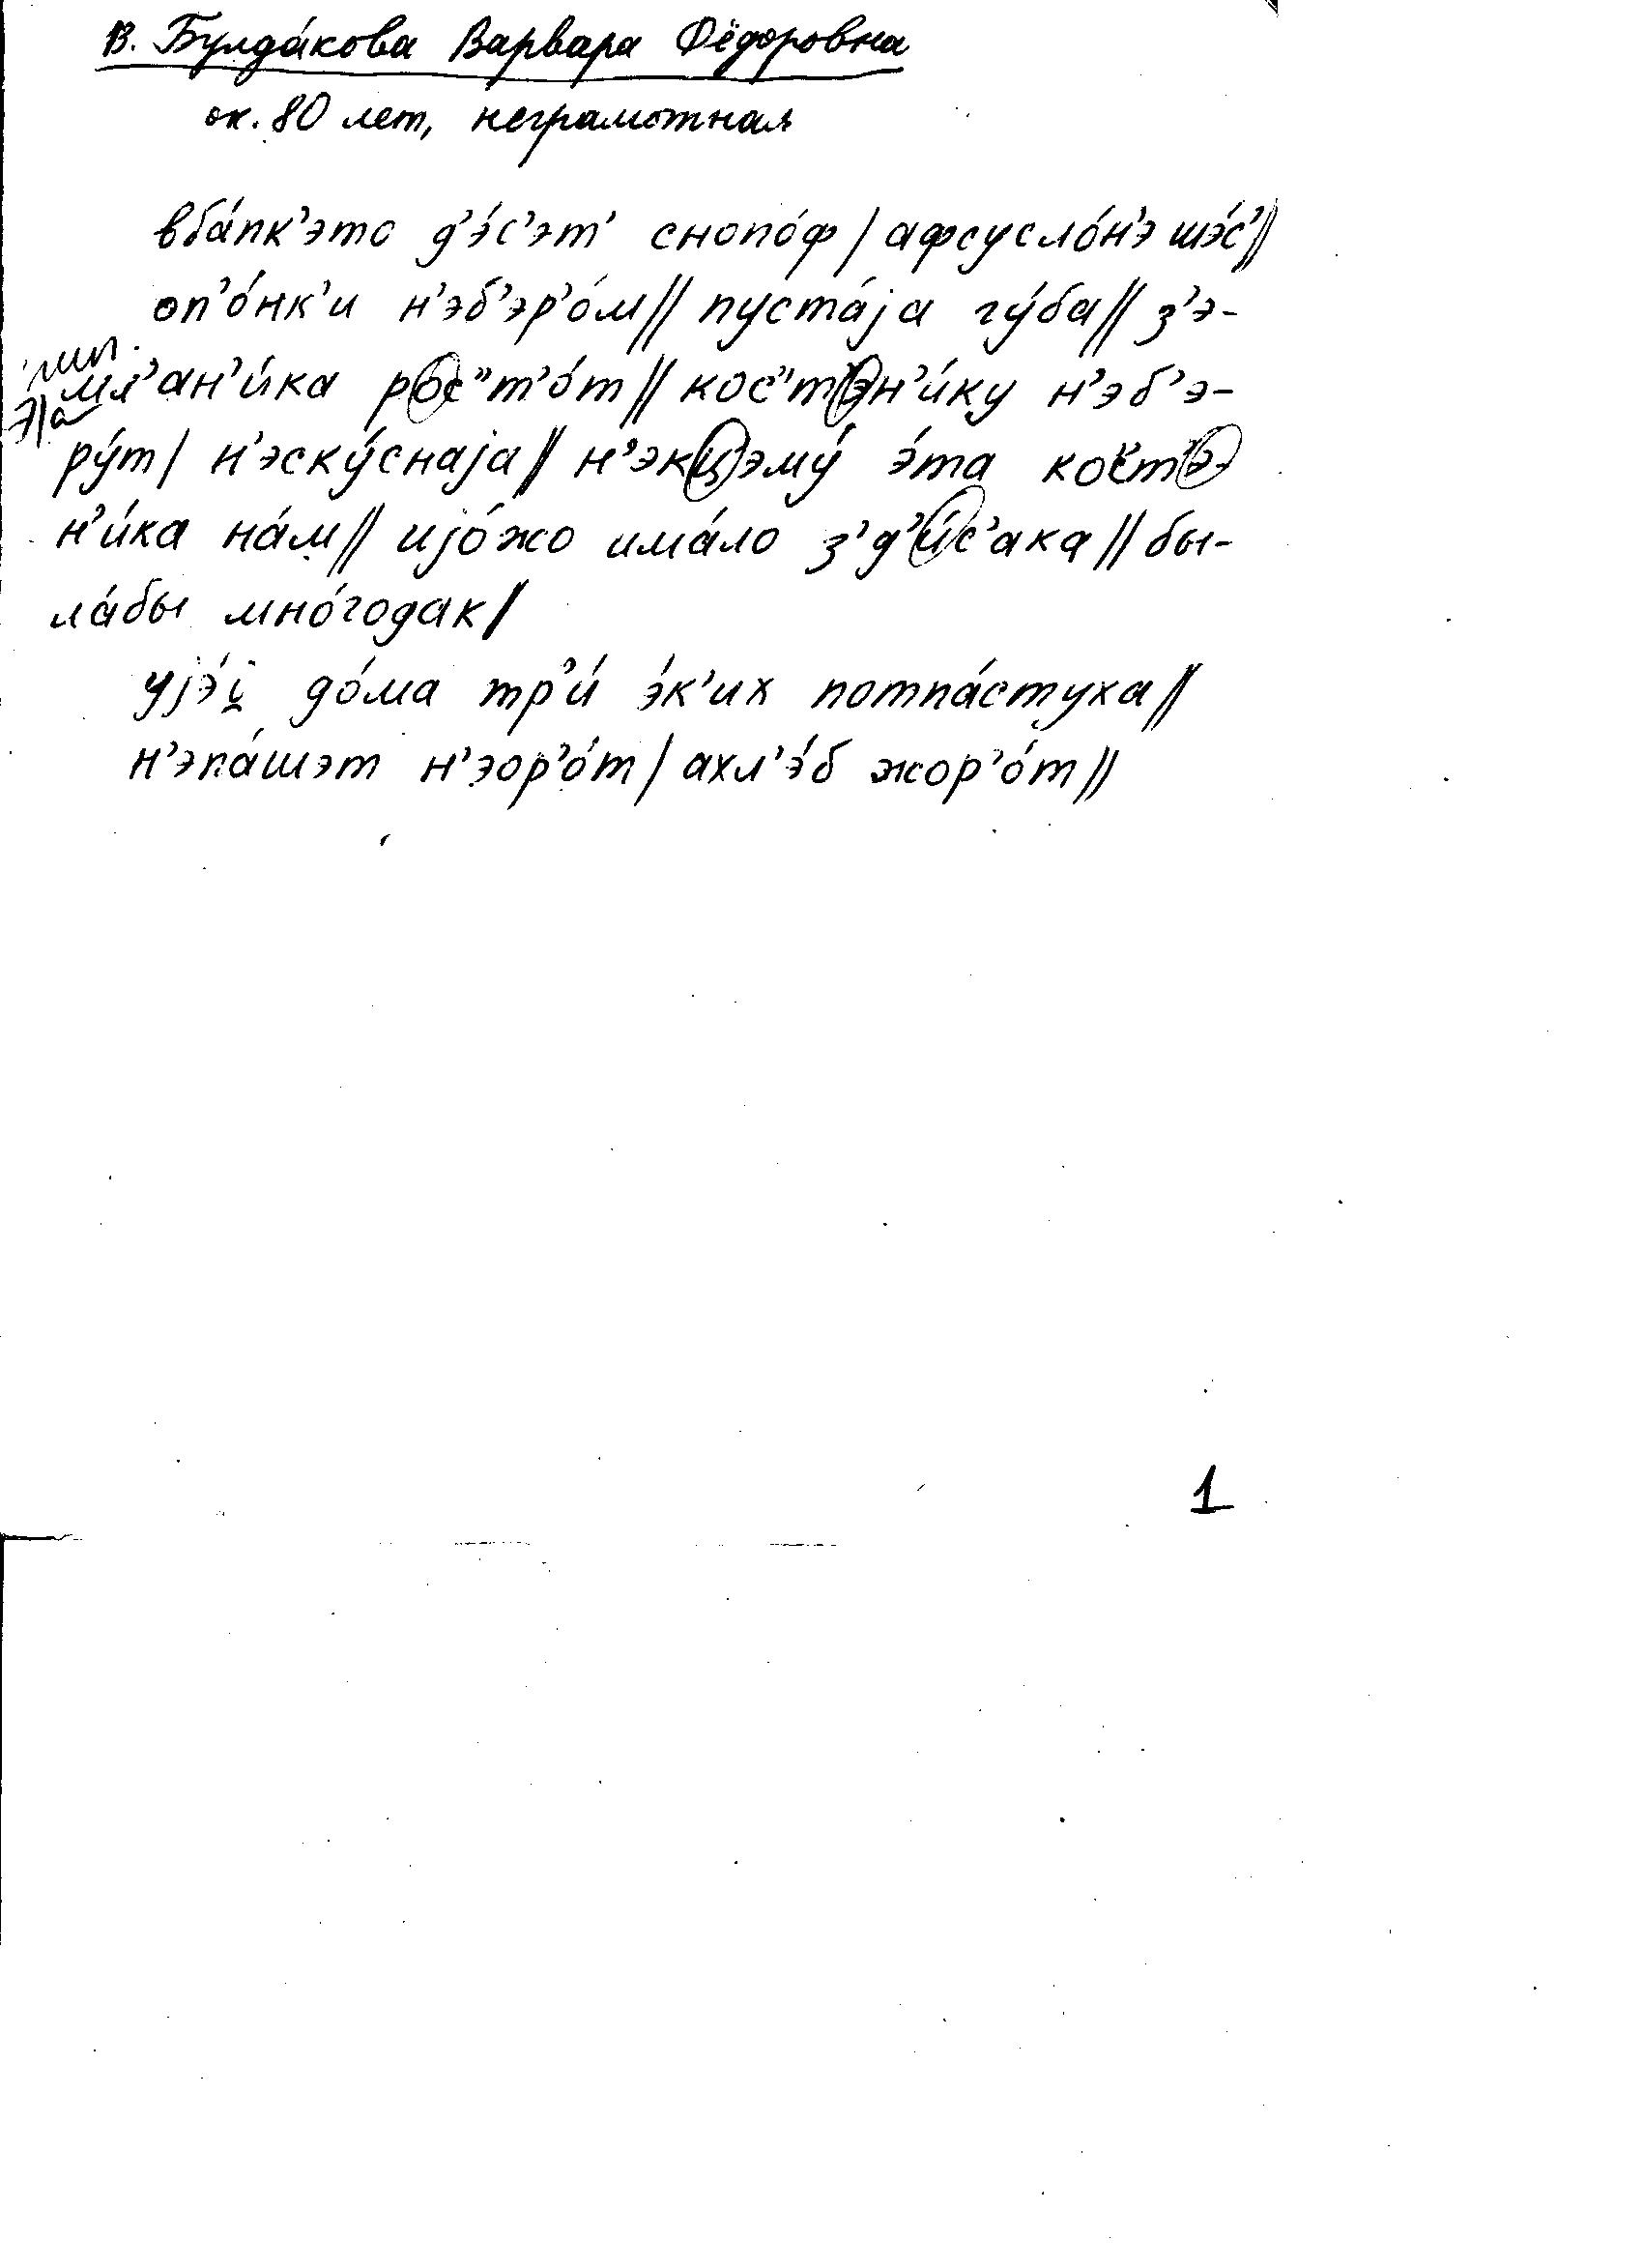 В. Булда́кова Варвара Фёдоровна
ок. 80 лет, неграмотная
вба́пк'это д'э́с'эт' снопо́ф / афсусло́н'э шэ́с' //
оп'о́нк'и н'эб'эр'о́м // пуста́jа гу́ба // з'э-
мл'ан'и́ка рос"т'о́т // кос"т'эн'и́ку н'эб'э-
ру́т / н'эску́снаjа // н'экцэму́ э́та кос"т'э
н'и́ка на́м // иjо́жо има́ло з'д'и́с'ака // бы-
ла́бы мно́годак /
уjэ́i̯ до́ма тр'и́ э́к'их потпа́стуха //
н'эпа́шэт н'эор'о́т / ахл'э́б жор'о́т //
1